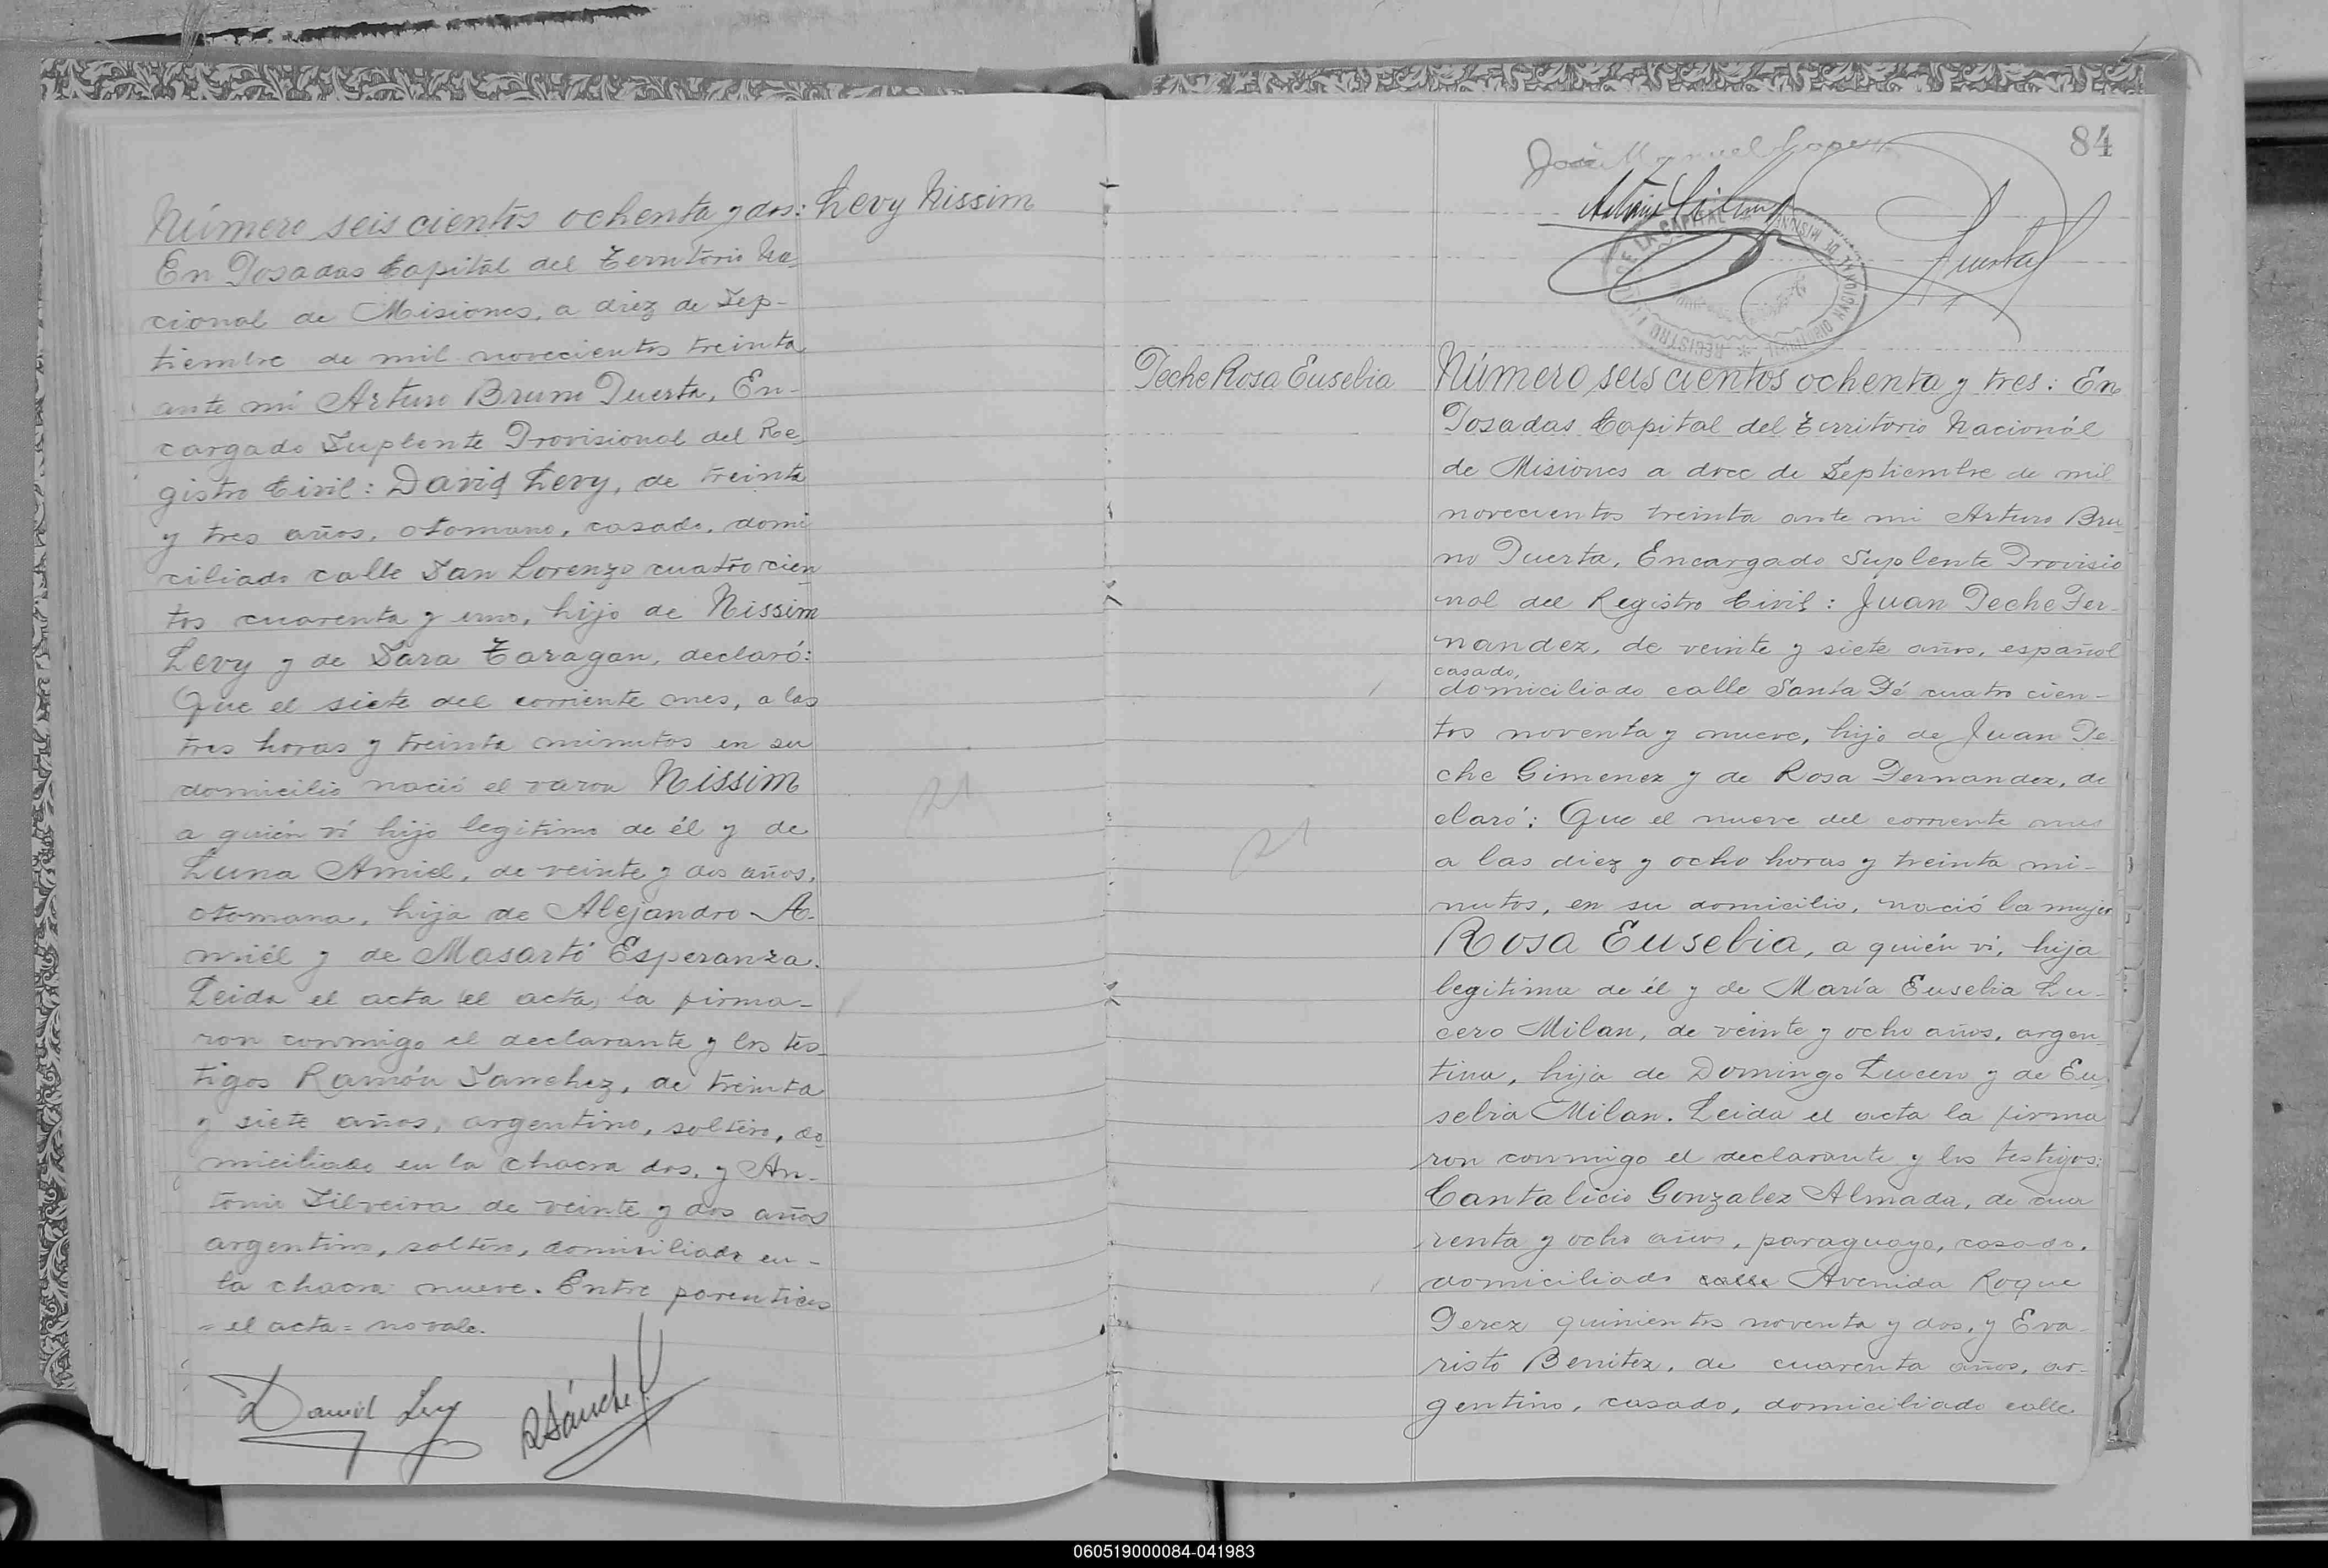 Número seis cientos ochenta y dos: Levy Nissim
En Posadas Capital del Territorio Na
cional de Misiones, a diez de Sep-
tiembre de mil novecientos treinta
ante mi Arturo Bruno Puerta, En-
cargado Suplente Provisional del Re
gistro Civil: David Levy, de treinta
y tres años, otomano, casado, domi
ciliado calle San Lorenzo cuatro cien
tos cuarenta y uno, hijo de Nissim
Levy y de Sara Taragan, declaró:
Que el siete del corriente mes, a las
tres horas y treinta minutos en su
domicilio nació el varon Nissim
a quién ví hijo legitimo de él y de
Luna Amiel, de veinte y dos años,
otomana, hija de Alejandro A-
miél y de Masartó Esperanza.
Leida el acta (el acta) la firma-
ron conmigo el declarante y los tes-
tigos Ramón Sanchez, de treinta
y siete años, argentino, soltero, do
miciliado en la chacra dos, y An-
tonio Silveira de veinte y dos años
argentino, soltero, domiciliado en-
la chacra nueve. Entre parenticis
= el acta = no vale.
David Levy RSánchez
84
José Manuel Lopez
Puerta
REGISTRO CIVIL DE LA CAPITAL
Peche Rosa Eusebia
Número seis cientos ochenta y tres: En
Posadas Capital del Territorio Nacionál
de Misiones a doce de Septiembre de mil
novecientos treinta ante mi Arturo Bru
no Puerta, Encargado Suplente Provisio
nal del Registro Civil: Juan Peche Fer-
nandez, de veinte y siete años, español
casado,
domiciliado calle Santa Fé cuatro cien-
tos noventa y nueve, hijo de Juan Pe-
che Gimenez y de Rosa Fernandez, de
claró: Que el nueve del corriente mes
a las diez y ocho horas y treinta mi-
nutos, en su domicilio, nació la mujer
Rosa Eusebia, a quién ví, hija
legitima de él y de María Eusebia Lu-
cero Milan, de veinte y ocho años, argen
tina, hija de Domingo Lucero y de Eu
sebia Milan. Leida el acta la firma
ron conmigo el declarante y los testigos:
Cantalicio Gonzalez Almada, de cua
renta y ocho años, paraguayo, casado,
domiciliado calle Avenida Roque
Perez quinientos noventa y dos, y Eva-
risto Benitez, de cuarenta años, ar-
gentino, casado, domiciliado calle
21
21
060519000084-041983